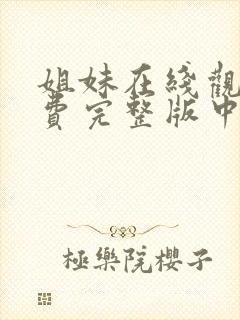 姐妹在綫觀
費完整版中
極樂院櫻子